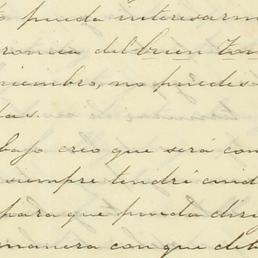 pueda interesarm
cronica del buen Ton
viembre, no puedes
tas.
bajo creo que será con
siempre tendré cuid
para que pueda diri
manera con que deb